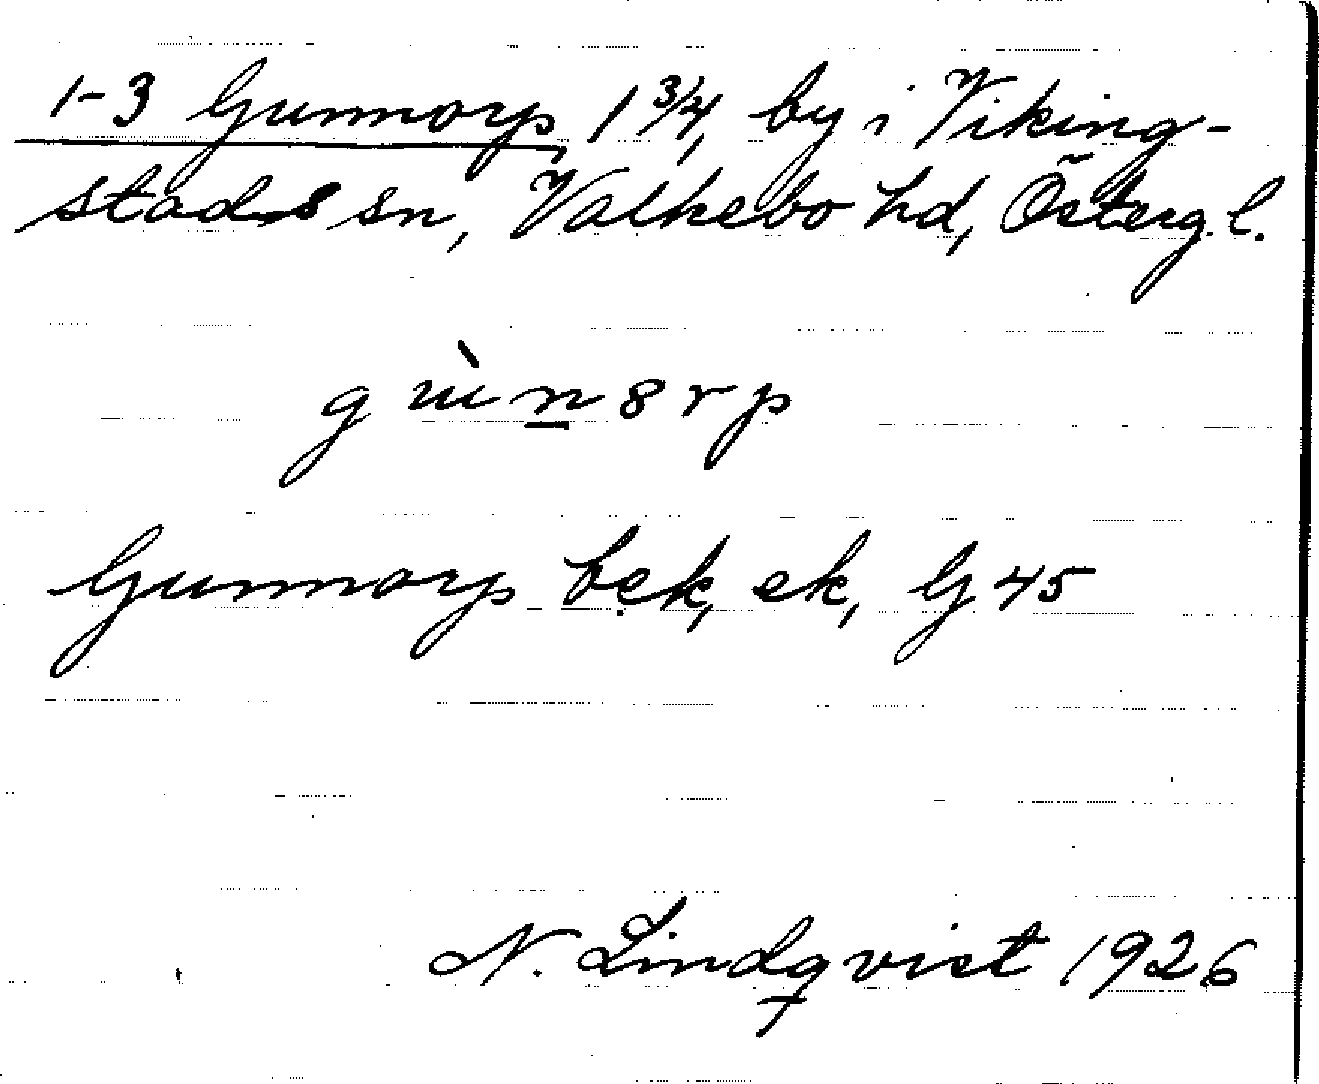 1-3 Gunnorp, 1 3/4, by i Viking-
stads sn, Valkebo hd, Österg.l.
g ùn̲8rp
Gunnorp bek, ek, G 45
N. Lindqvist 1926